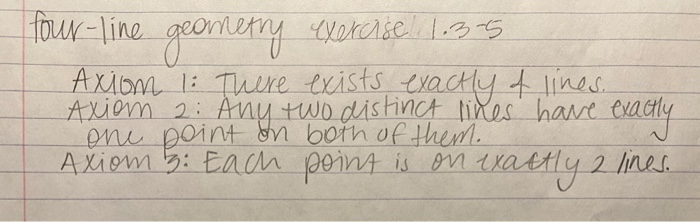 four-line geometry exercise 1.3-5
Axiom 1: There exists exactly 4 lines.
Axiom 2: Any two distinct lines have exactly
one point on both of them.
Axiom 3: Each point is on exactly 2 lines.